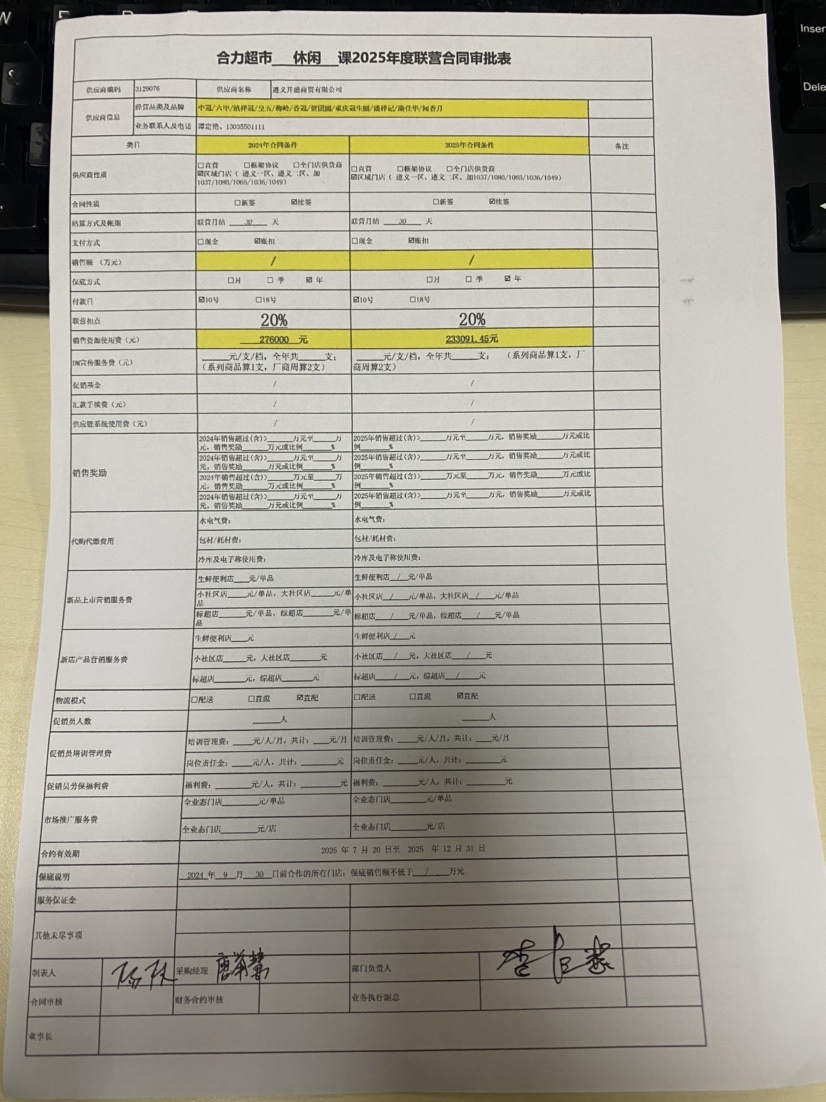 合力超市 休闲 课2025年度联营合同审批表
供应商编码 3129076 供应商名称 遵义开盛商贸有限公司
供应商信息
经营品类及品牌 中冠/六甲/波祥冠/皇五/梅岭/香冠/贺团圆/重庆冠生园/潘祥记/渝佳华/闻香月
业务联系人及电话 谭定艳、13035501111
类目 2024年合同条件 2025年合同条件 备注
供应商性质
☐直营 ☐框架协议 ☐全门店供货商
☑区域门店( 遵义一区、遵义二区、加
1037/1080/1065/1036/1049)
☐直营 ☐框架协议 ☐全门店供货商
☑区域门店( 遵义一区、遵义二区、加1037/1080/1065/1036/1049)
合同性质 ☐新签 ☑续签 ☐新签 ☑续签
结算方式及帐期 联营月结 30 天 联营月结 30 天
支付方式 ☐现金 ☑账扣 ☐现金 ☑账扣
销售额(万元) / /
保底方式 ☐月 ☐季 ☑年 ☐月 ☐季 ☑年
付款日 ☑10号 ☐18号 ☑10号 ☐18号
联营扣点 20% 20%
销售资源使用费(元) 276000 元 233091.45元
DM宣传服务费(元)
____元/支/档,全年共____支;
(系列商品算1支,厂商周算2支)
____元/支/档,全年共____支; (系列商品算1支,厂
商周算2支)
促销基金 / /
汇款手续费(元) / /
供应链系统使用费(元) / /
销售奖励
2024年销售超过(含)>____万元至____万
元,销售奖励____万元或比例____%
2025年销售超过(含)>____万元至____万元,销售奖励____万元或比
例____%
2024年销售超过(含)>____万元至____万
元,销售奖励____万元或比例____%
2025年销售超过(含)>____万元至____万元,销售奖励____万元或比
例____%
2024年销售超过(含)>____万元至____万
元,销售奖励____万元或比例____%
2025年销售超过(含)>____万元至____万元,销售奖励____万元或比
例____%
2024年销售超过(含)>____万元至____万
元,销售奖励____万元或比例____%
2025年销售超过(含)>____万元至____万元,销售奖励____万元或比
例____%
代购代缴费用
水电气费: 水电气费:
包材/耗材费: 包材/耗材费:
冷库及电子称使用费: 冷库及电子称使用费:
新品上市营销服务费
生鲜便利店____元/单品 生鲜便利店 / 元/单品
小社区店____元/单品,大社区店____元/单
品
小社区店 / 元/单品,大社区店 / 元/单品
标超店____元/单品,综超店____元/单
品
标超店 / 元/单品,综超店 / 元/单品
新店产品营销服务费
生鲜便利店____元 生鲜便利店 / 元
小社区店____元,大社区店____元 小社区店 / 元,大社区店 / 元
标超店____元,综超店____元 标超店 / 元,综超店 / 元
物流模式 ☐配送 ☐直流 ☑直配 ☐配送 ☐直流 ☑直配
促销员人数 ____人 ____人
促销员培训管理费
培训管理费:____元/人/月,共计:____元/月 培训管理费:____元/人/月,共计:____元/月
岗位责任金:____元/人,共计:____元 岗位责任金:____元/人,共计:____元
促销员劳保福利费 福利费:____元/人,共计:____元 福利费:____元/人,共计:____元
市场推广服务费
全业态门店____元/单品 全业态门店____元/单品
全业态门店____元/店 全业态门店____元/店
合约有效期 2025 年 7 月 20 日至 2025 年 12 月 31 日
保底说明 2024 年 9 月 30 日前合作的所有门店:保底销售额不低于 / 万元
服务保证金
其他未尽事项
制表人 采购经理 部门负责人
合同审核 财务合约审核 业务执行副总
董事长